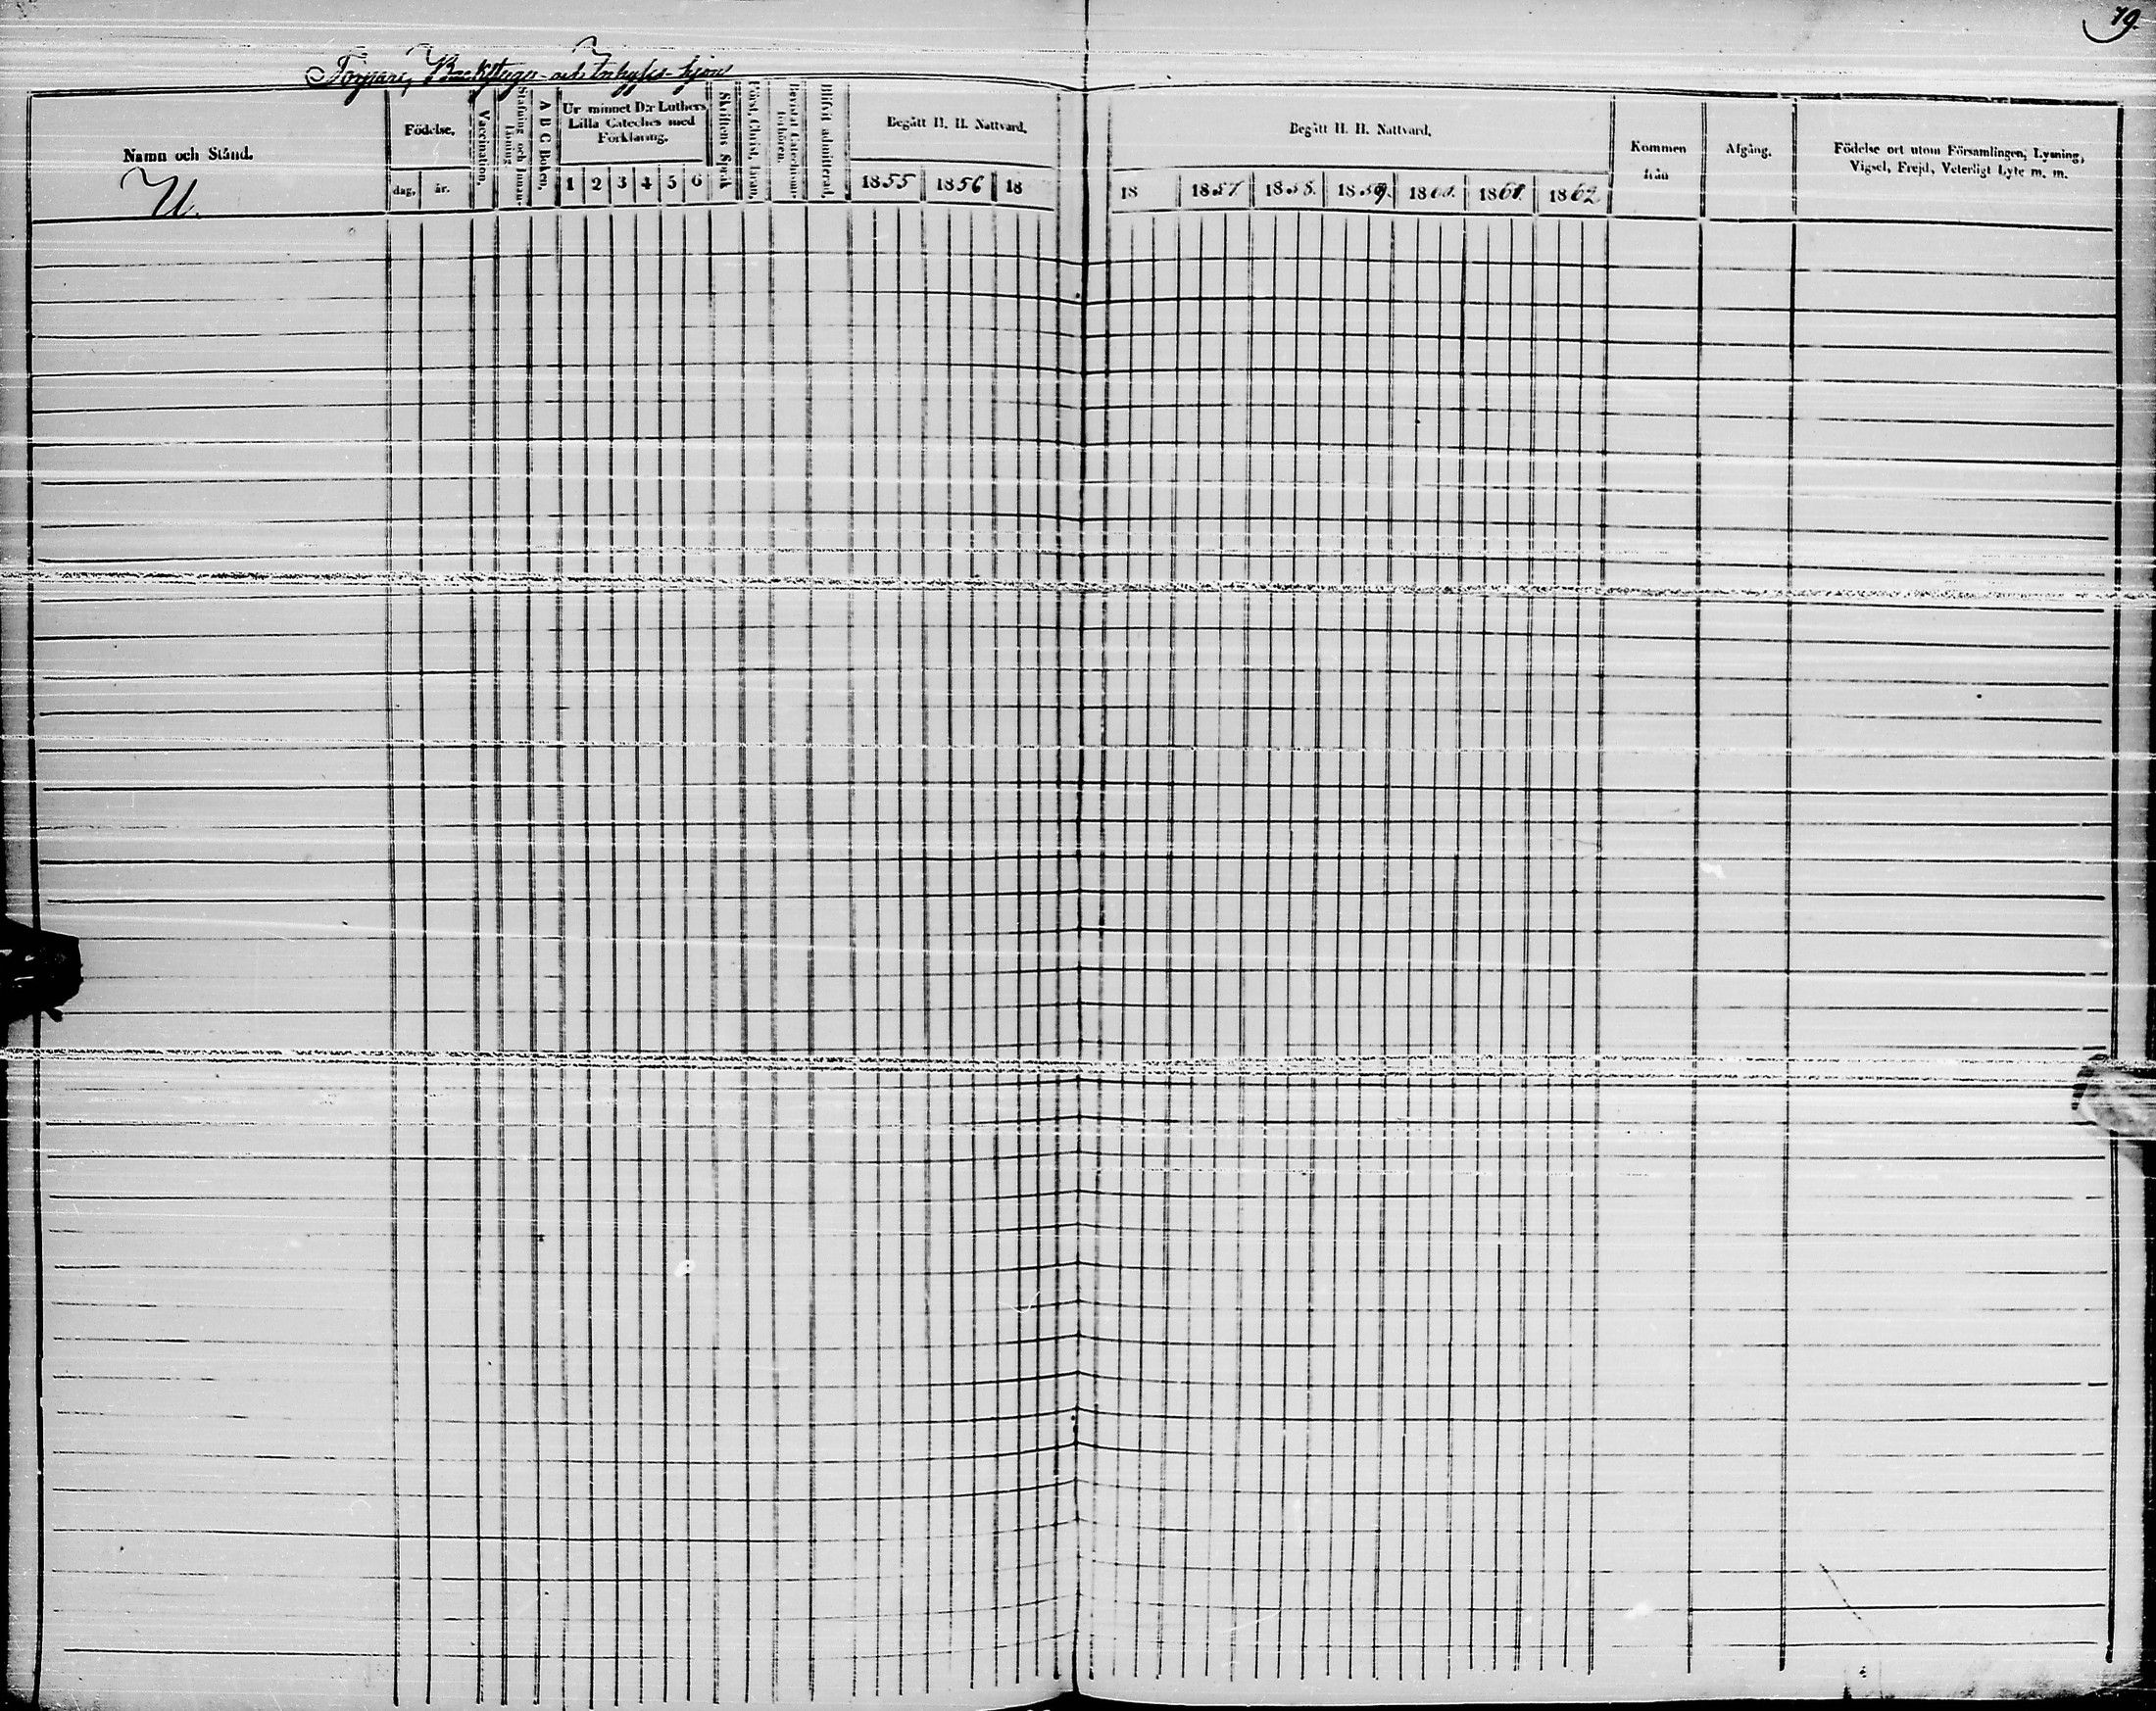 79.
Torpare, Backstugu- och Inhyses-hjon
Namn och Stånd.
U.
Födelse,
dag, år.
Vaccination,
Stafning och Innan-
läsning
A B C Boken,
Ur minnet D:r Luthers
Lilla Cateches med
Förklaring.
1 2 3 4 5 6
Skriftens Språk
Bevistat Catechismi-
förhören.
Blifvit admitterad,
Begått H. H. Nattvard.
1855 1856 18
Begått H. H. Nattvard.
18 1857 1858. 1859. 1860. 1861. 1862
Kommen
från
Afgång.
Födelse ort utom Församlingen, Lysning,
Vigsel, Frejd, Veterligt Lyte m. m.